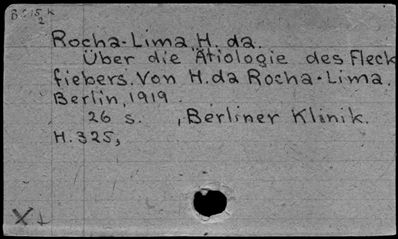 Rocha-Lima, H. da.
Über die Ätiologie des Fleck
fiebers. Von H. da Rocha-Lima.
Berlin, 1919.
26 s. , Berliner Klinik.
H. 325,